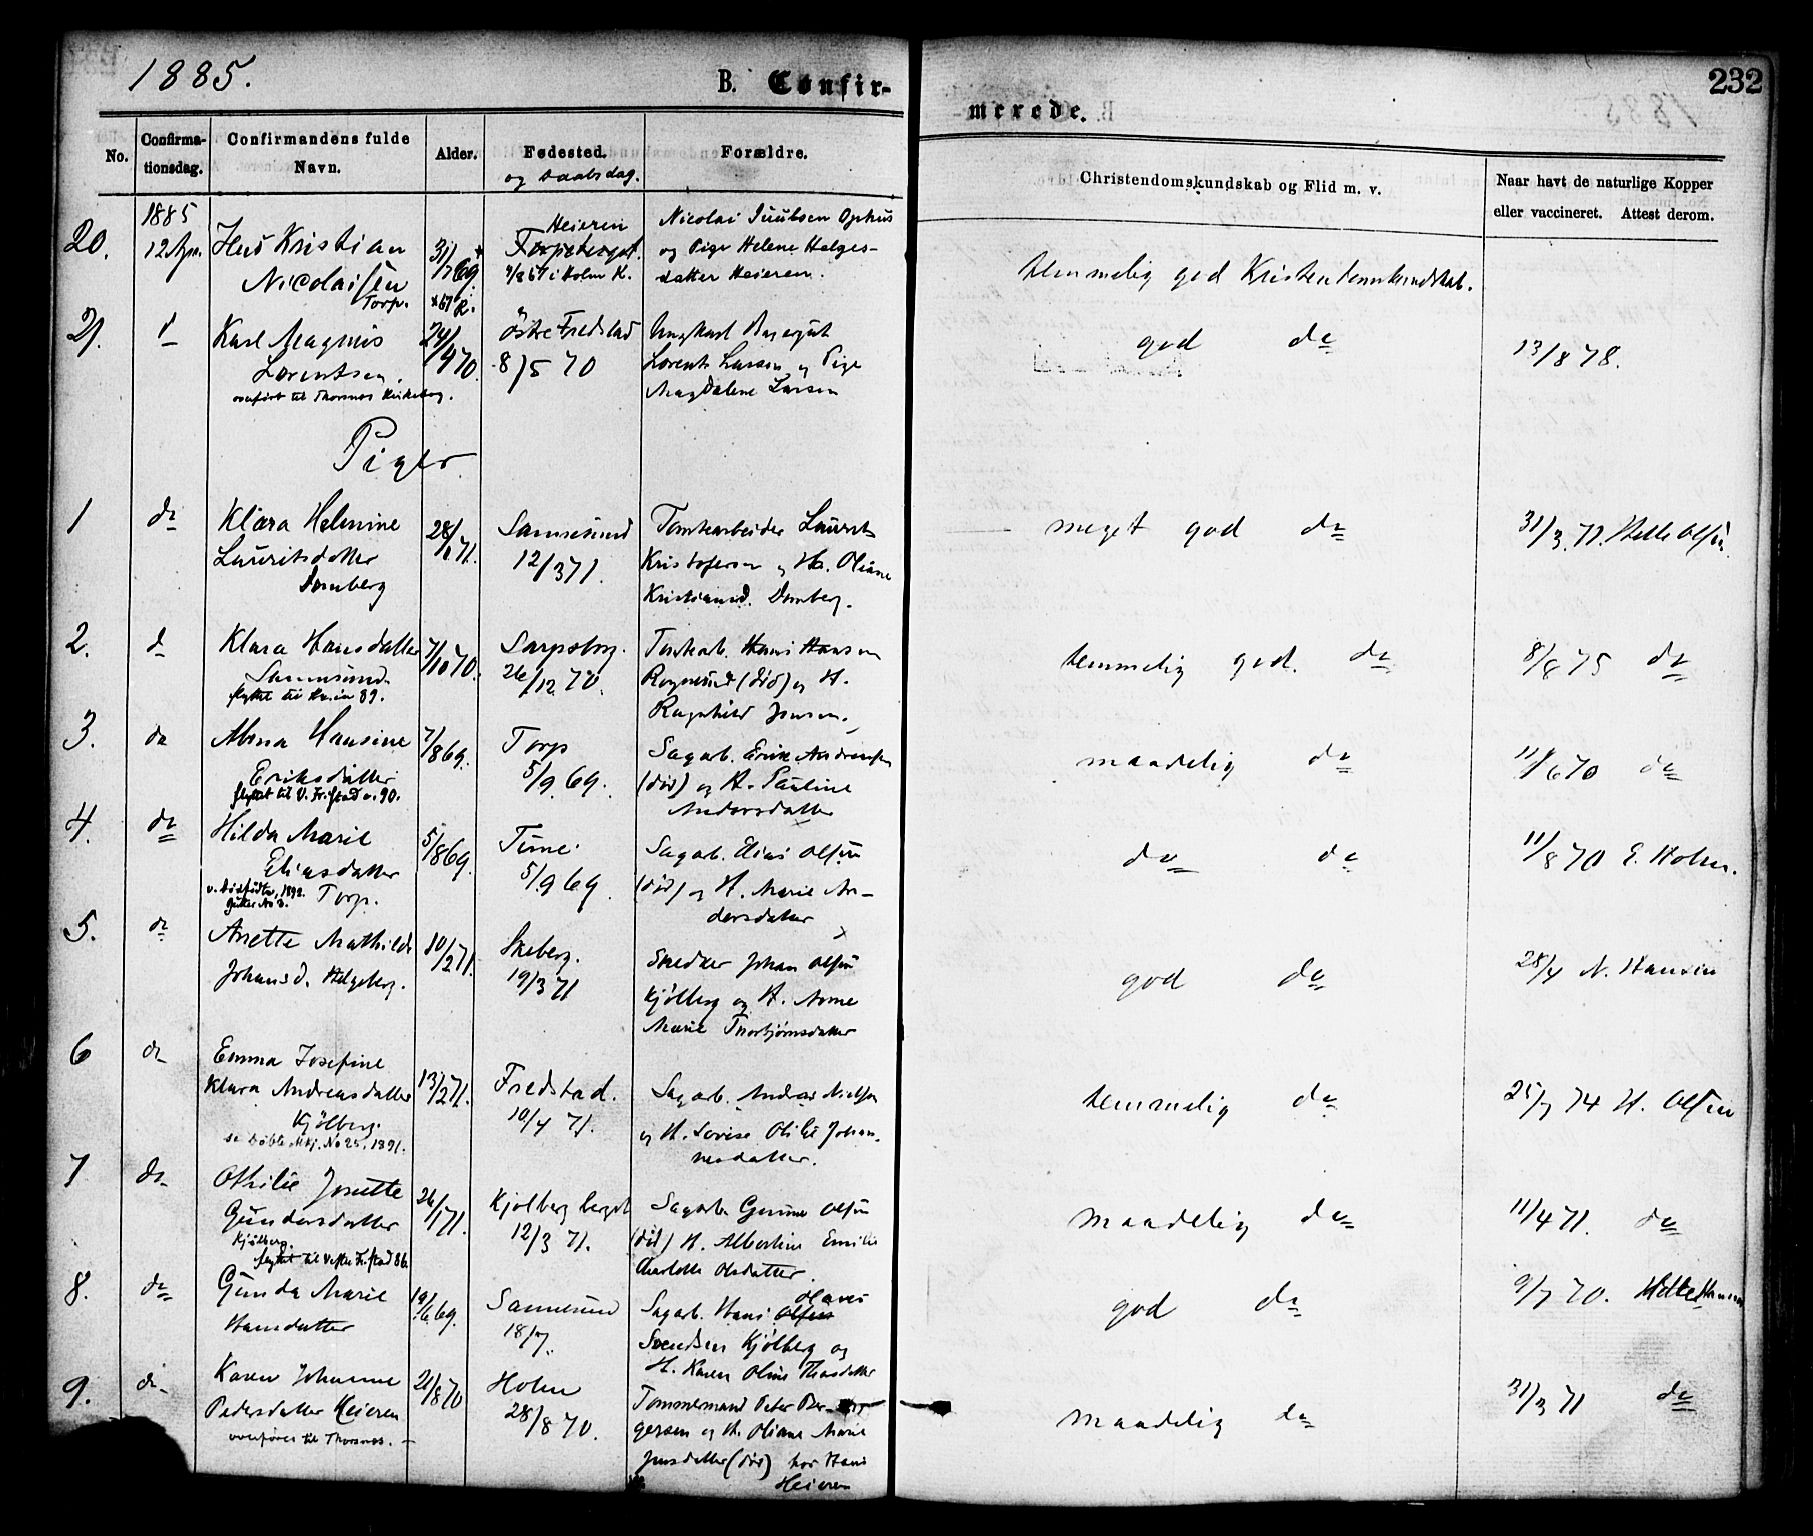 1885.
B. Confir-
merede.
232
No.
Confirma-
tionsdag.
Confirmandens fulde
Navn.
Alder.
Fødested.
og daabsdag.
Forældre.
Christendomskundskab og Flid m. v.
Naar havt de naturlige Kopper
eller vaccineret. Attest derom.
20.
1885
12 Apr.
Kristian
Nicolaisen
Torp.
31/7 69.
Heieren
i Holm K.
Nicolai
og Pige Helene Helges-
datter Heieren.
temmelig god Kristendomskundskab.
21.
d
Karl Magnus
Lorentsen.
overført til Thorsnes Kirkebog.
24/4 70.
Østre Fredstad
8/5 70
Ungkarl
Lorents Larsen og Pige
Magdalene Larsen
god do
13/8 78.
Piger
1
do
Klara Helmine
Lauritsdatter
Domberg
28/1 71.
Sannesund
12/3 71.
Tomtearbeider Laurits
Kristofersen og H. Oliane
Kristiansd. Domberg.
meget god do
31/3 71. Helle Olsen
2.
do
Klara Hansdatter
Sannesund
7/10 70.
Sarpsborg.
26/12 70.
Tomtearb. Hans Hansen
(død) og H.
Ragnhild Jensen.
temmelig god. do
8/8 75 do
3.
do
Hansine
Eriksdatter
flyttet til V. Fr.stad n. 90.
7/8 69.
Torp
5/9 69.
Sagarb. Erik Andreassen
(død) og H. Pauline
Andersdatter
maadelig do
11/6 70 do
4.
do
Hilda Marie
Eliasdatter
Torp.
5/8 69.
Tune
5/9 69.
Sagarb. Elias Olsen
(død) og H. Marie An-
dersdatter
do do
11/8 70 E. Holm.
5.
do
Anette Mathilde
Johansd. Helgeberg.
10/2 71.
Skeberg.
19/3 71
Snedker Johan Olsen
Kjølberg og H. Anne
Marie Thorbjørnsdatter
god do
28/4 N. Hansen
6
do
Emma Josefine
Klara Andreasdatter
Kjølberg.
se døble Mkj. No 25, 1891.
13/2 71.
Fredstad.
10/4 71.
Sagarb. Andreas Nielsen
og H. Lovise Otilie Johan-
nesdatter.
temmelig do
25/7 74 H. Olsen
7
do
Othilie Josette
Gundersdatter
Kjølberg.
flyttet til Vestre Fr.stad 86.
26/1 71.
Kjølberg berget
12/3 71.
Sagarb. Olsen
(død) H. Albertine Emilie
Charlotte Olsdatter.
maadelig do
11/4 71. do
8.
do
Gunda Marie
Hansdatter
19/6 69.
Sannesund
18/7.
Sagarb. Hans
Svendsen Kjølberg og
H. Karen Oline Thordatter
god do
9/7 70. Mette Hansen
9.
do
Karen Johanne
Pedersdatter Heieren
overføres til Thorsnes.
21/8 70
Holm
28/8 70.
Tømmermand Peter Bør-
gersen og H. Oliane Marie
Jensdatter (død) hos Hans
Heieren
maadelig do
31/3 71 do